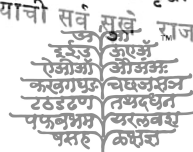 याची सर्व सुखे राज
अ आ
इईउ ऊएॲ
ऐओऑ औअंअः
कखगघङ चछजझञ
टठडढण तथदधन
पफबभम यरलवश
षसह ळक्षज्ञ